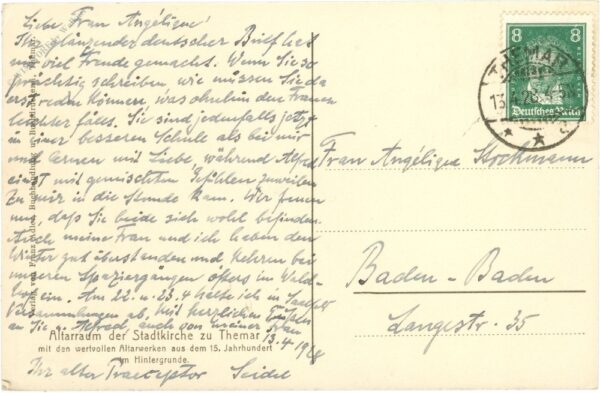 Liebe Frau Angélique!
Ihr glänzender deutscher Brief hat
mir viel Freude gemacht. Wenn Sie so
prächtig schreiben, wie müssen Sie da
erst reden können, was ohnehin den Frauen
leichter fällt. Sie sind jedenfalls jetzt
in einer besseren Schule als bei mir
und lernen mit Liebe, während Alfred
einst mit gemischten Gefühlen zuweilen
zu mir in die Stunde kam. Wir freuen
uns, daß Sie beide sich wohl befinden.
Auch meine Frau und ich haben den
Winter gut überstanden und kehren bei
unseren Spaziergängen öfters im Wald-
ein. Am 22. u. 23.4 halte ich in Saalfeld
Versammlungen ab. Mit herzlichen Grüßen
an Sie u. Alfred, auch von meiner Frau
13.4 1928
Ihr alter Praeceptor Seidel
Altarraum der Stadtkirche zu Themar
mit den wertvollen Altarwerken aus dem 15. Jahrhundert
im Hintergrunde.
8 8
Deutsches Reich
THEMAR
Frau Angélique Stockmann
Baden-Baden
Langestr. 35